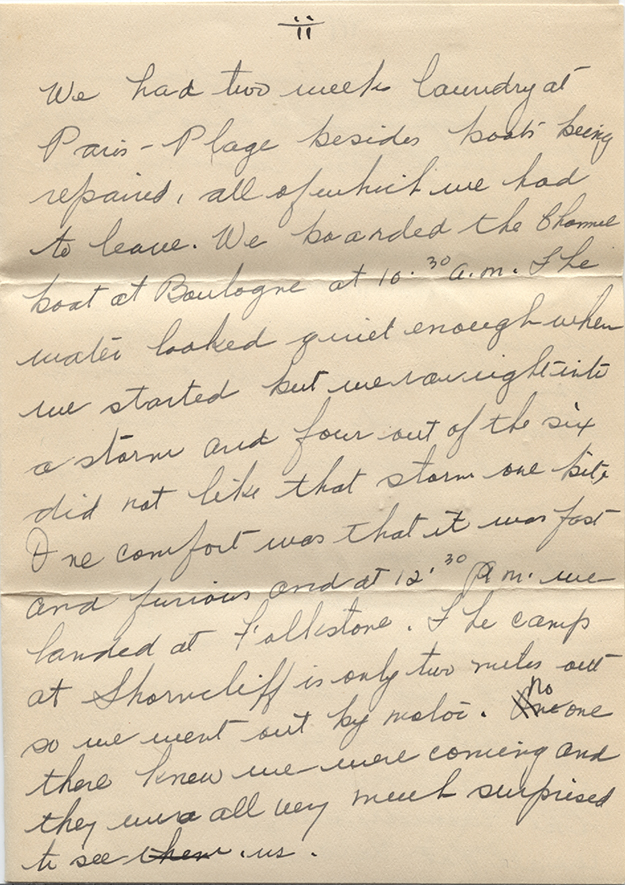 ii
We had two weeks laundry at
Paris-Plage besides boots being
repaired, all of which we had
to leave. We boarded the Channel
boat at Boulogne at 10.30 a.m. The
water looked quiet enough when
we started but we ran right into
a storm and four out of the six
did not like that storm one bit.
One comfort was that it was fast
and furious and at 12.30 P.m. we
landed at Folkstone. The camp
at Shorncliff is only two miles out
so we went out by motor. no one
there knew we were coming and
they were all very much surprised
to see them us.